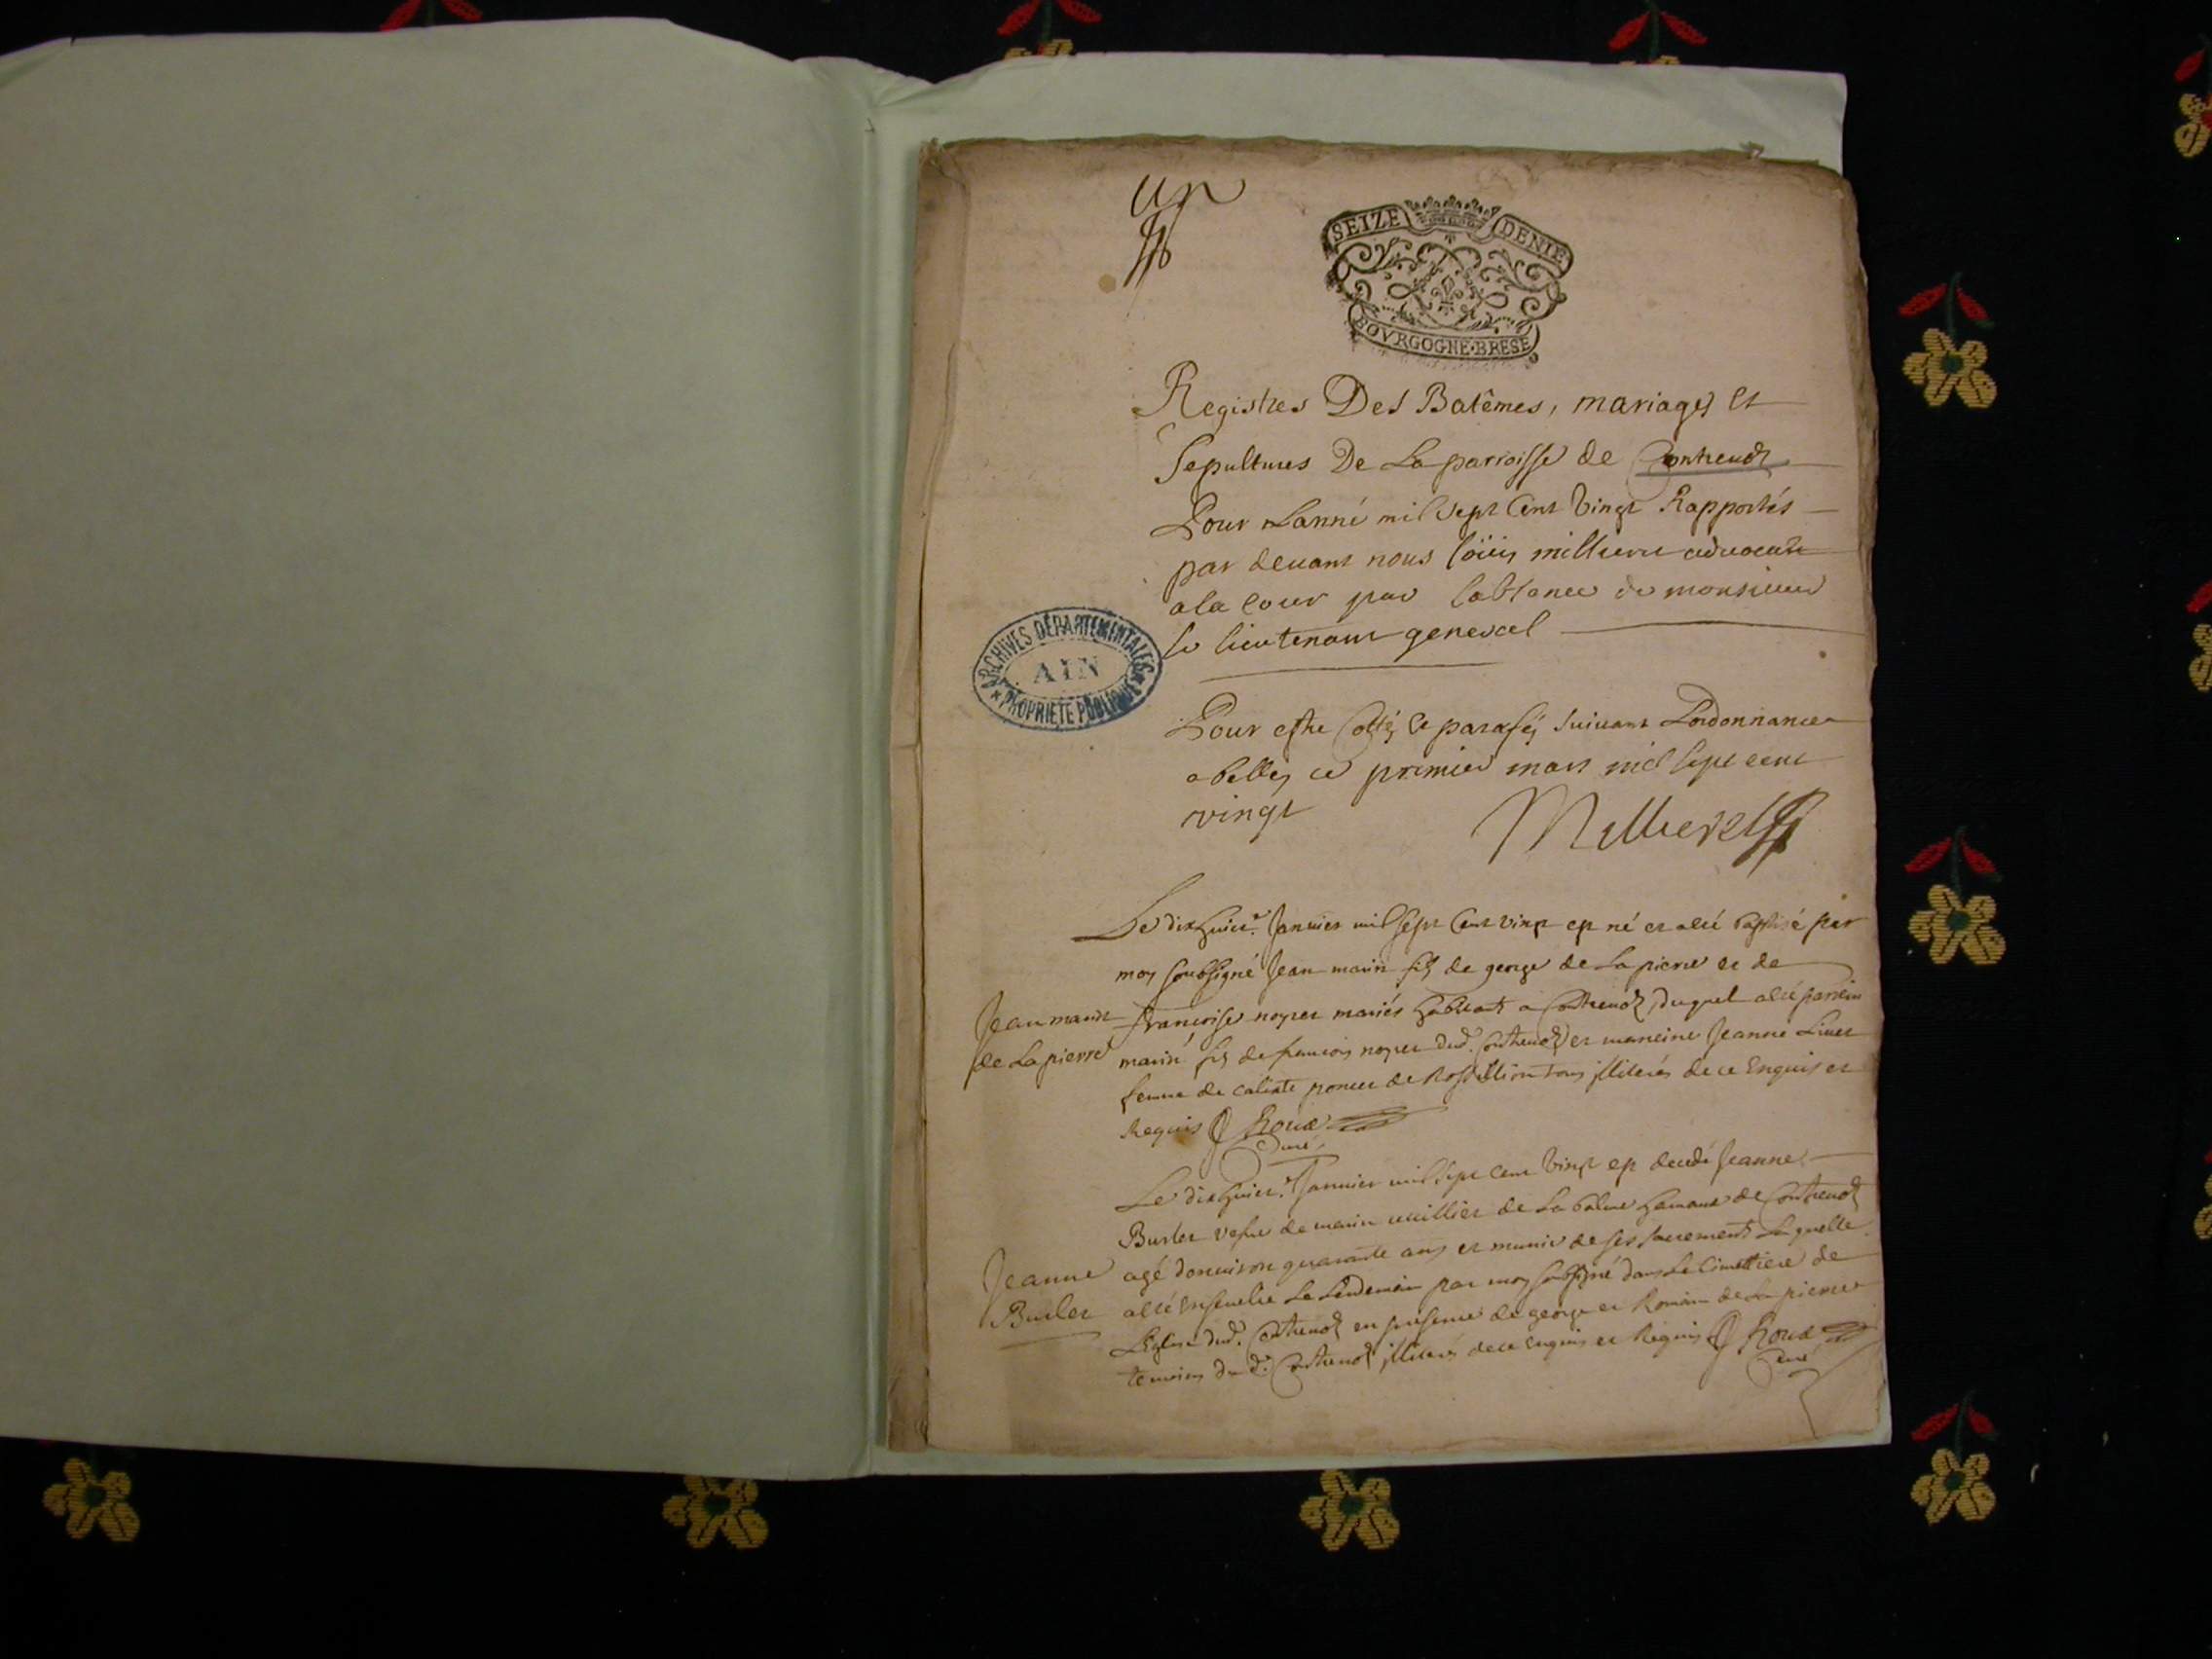 un
SEIZE DENIE
BOVRGOGNE·BRESE
Registres Des Batêmes, mariages et
Sepultures De La parroisse de Contrevoz
Pour Lanné mil sept Cent vingt Rapportés
par devant nous loüis millieret advocat
a la cour par labsance de monsieur
le lieutenant general
ARCHIVES DÉPARTEMENTALES
AIN
★ PROPRIÉTÉ PUBLIQUE ★
Pour estre Cottés et parafés suivant Lordonnance
a belley ce premier mars mil sept cent
vingt
Millieret
Le dixhuict.e Janvier mil sept Cent vingt est né et a été baptisé par
moy soubsigné Jean marin fils de george de La pierre et de
Jean marin
de La pierre
francoise noyret mariés habitants a Contrevoz, duquel a été parrein
marin fils de francois noyret dud. Contrevoz et marreine Jeanne
femme de calixte poncet de Rossillion tous illiterés de ce Enquis et
Requis Roux
Curé
Le dixhuict.e Janvier mil sept cent vingt est decedé Jeanne
Burlet vefve de marin de La balme hameau de Contrevoz
Jeanne
Burlet
agé denviron quarante ans et munie de ses sacrements Laquelle
a été Ensevelie Le Lendemain par moy soubsigné dans Le Cimettiere de
L'Eglise dud. Contrevoz en presence de george et Romain de La pierre
temoins du d. Contrevoz illiterés de ce Enquis et Requis Roux
Curé